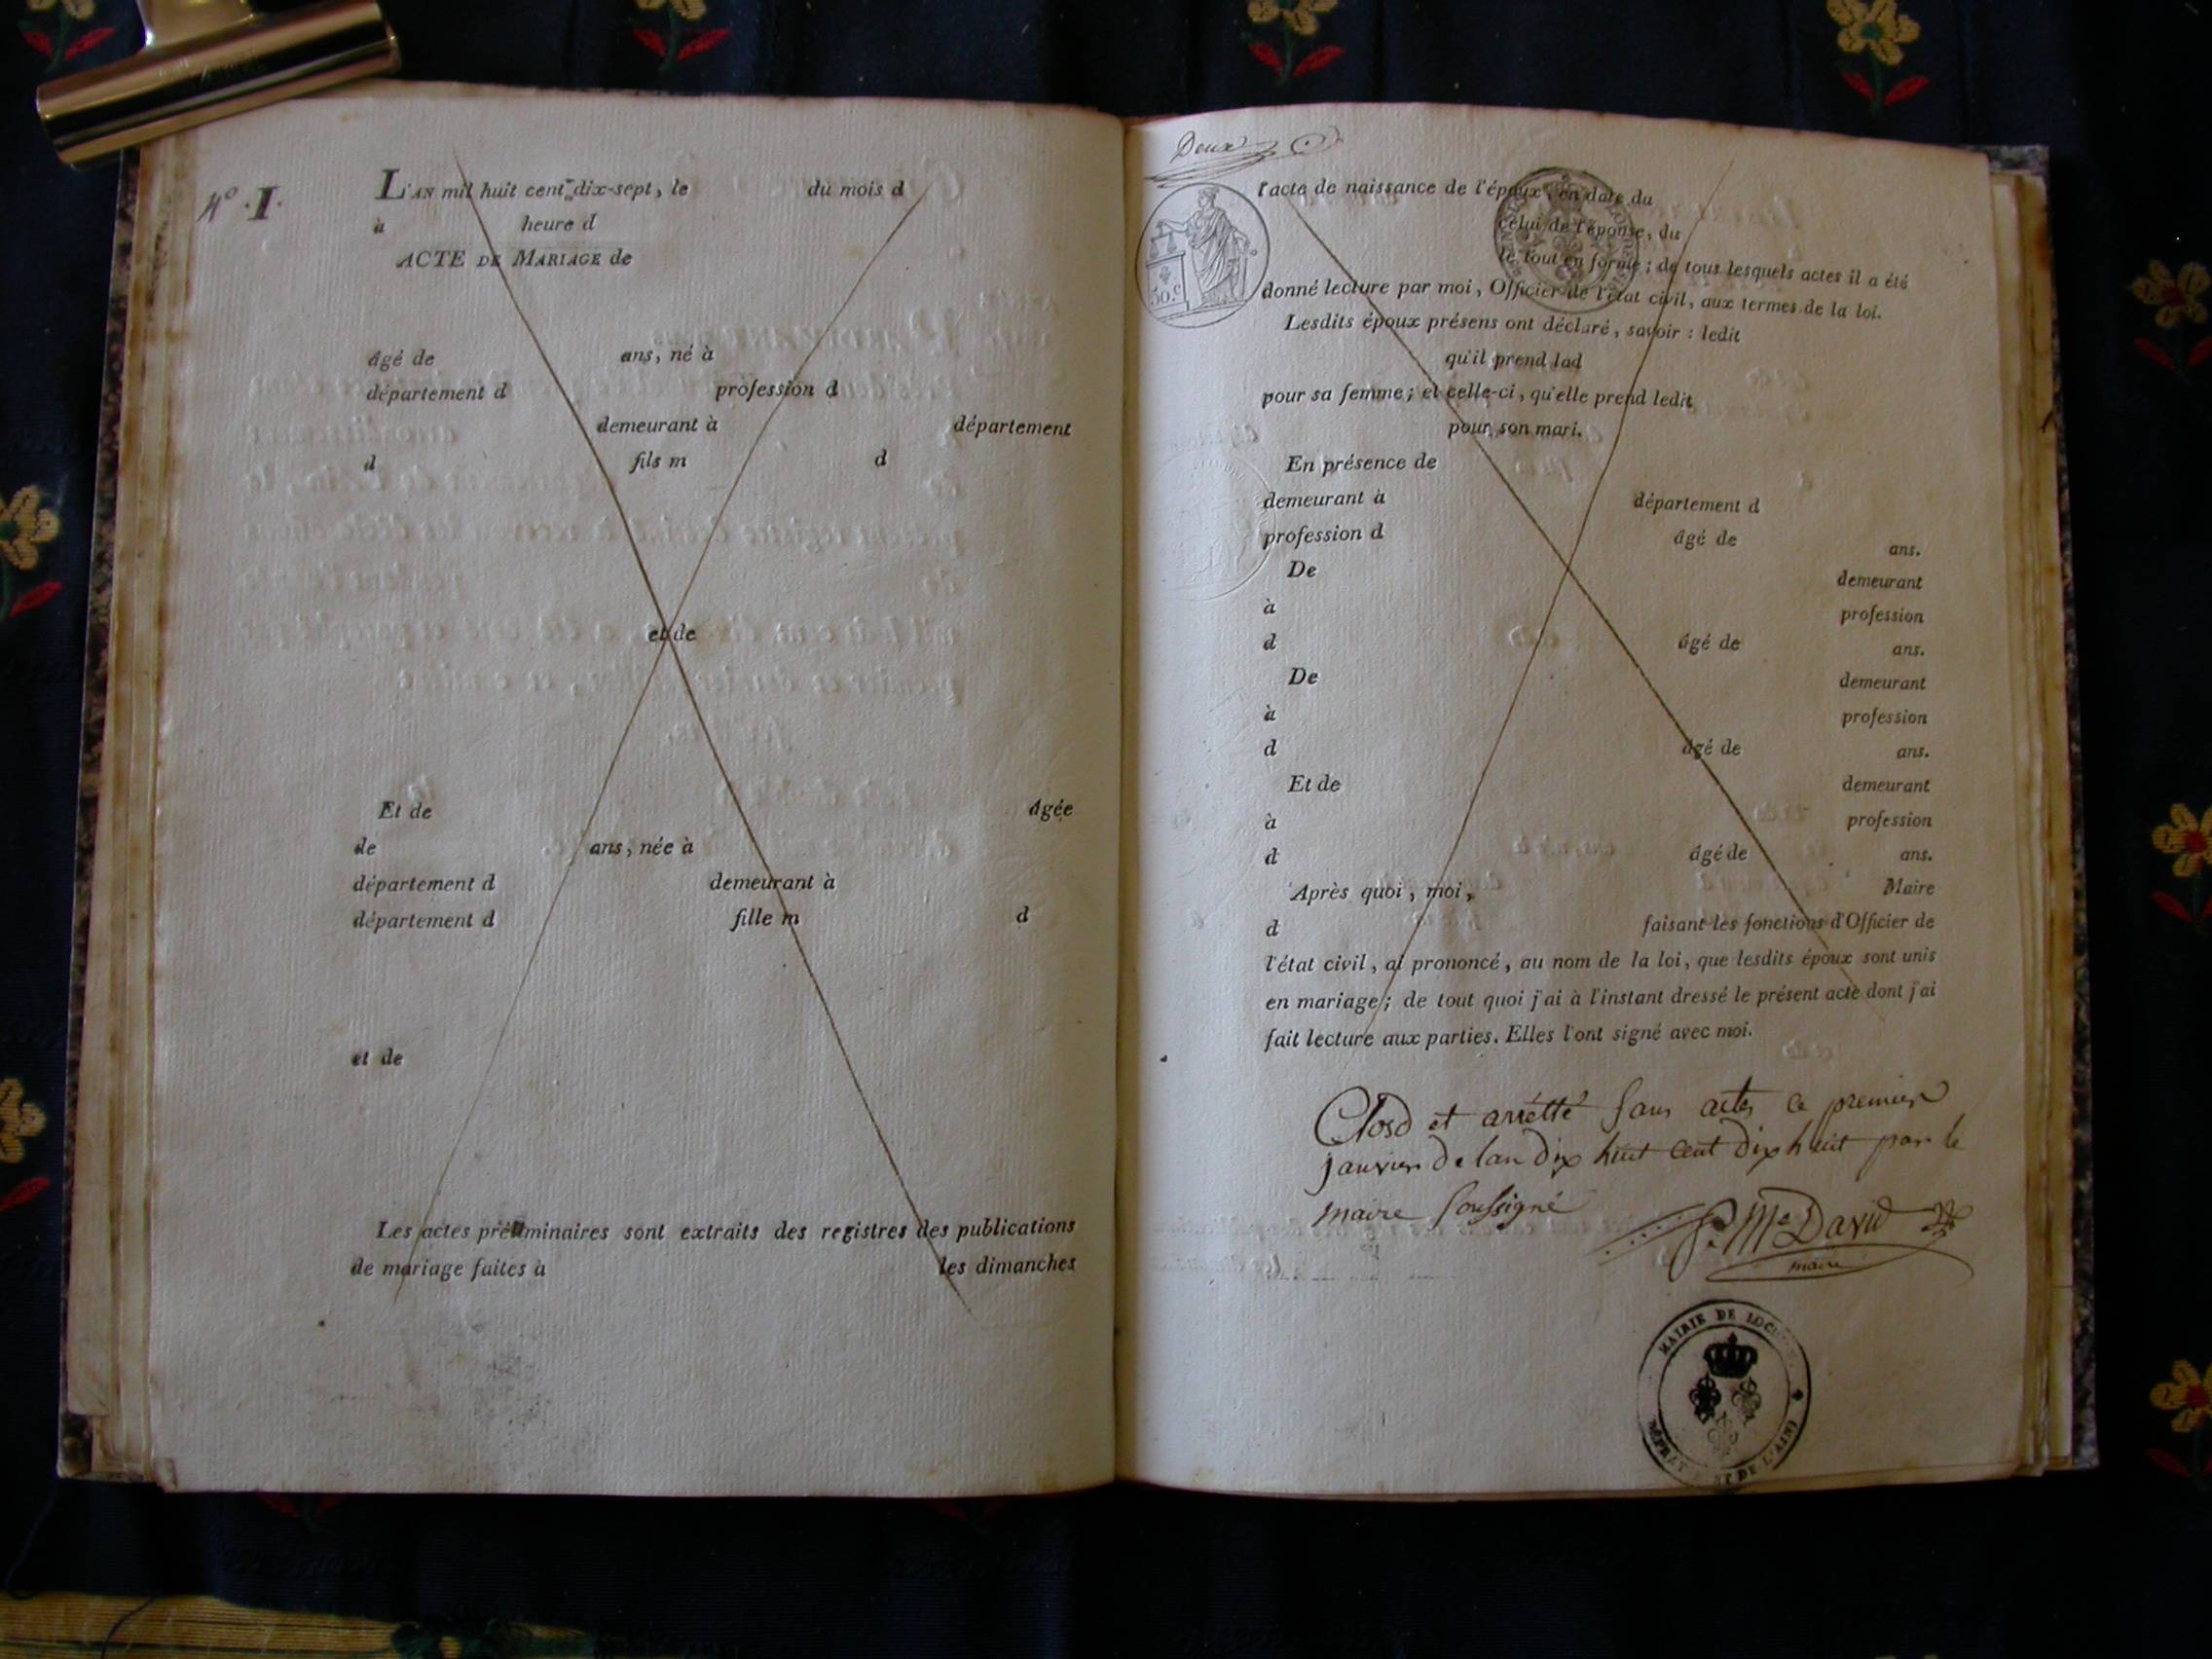 N.º I.
L'AN mil huit cent dix-sept, le du mois d
à heure d
ACTE DE MARIAGE de
âgé de ans, né à
département d profession d
demeurant à département
d fils m d
et de
Et de âgée
de ans, née à
département d demeurant à
département d fille m d
et de
Les actes préliminaires sont extraits des registres des publications
de mariage faites à les dimanches
Deux
l'acte de naissance de l'époux, en date du
celui de l'épouse, du
le tout en forme ; de tous lesquels actes il a été
donné lecture par moi, Officier de l'état civil, aux termes de la loi.
Lesdits époux présens ont déclaré, savoir : ledit
qu'il prend lad
pour sa femme ; et celle-ci, qu'elle prend ledit
pour son mari.
En présence de
demeurant à département d
profession d âgé de ans.
De demeurant
à profession
d âgé de ans.
De demeurant
à profession
d âgé de ans.
Et de demeurant
à profession
d âgé de ans.
Après quoi, moi, Maire
d faisant les fonctions d'Officier de
l'état civil, ai prononcé, au nom de la loi, que lesdits époux sont unis
en mariage ; de tout quoi j'ai à l'instant dressé le présent acte dont j'ai
fait lecture aux parties. Elles l'ont signé avec moi.
Closd et arrétté sans actes ce premier
janvier de lan dix huit cent dix huit par le
maire soussigné
David
maire
50.c
MAIRIE DE
DE L'AIN